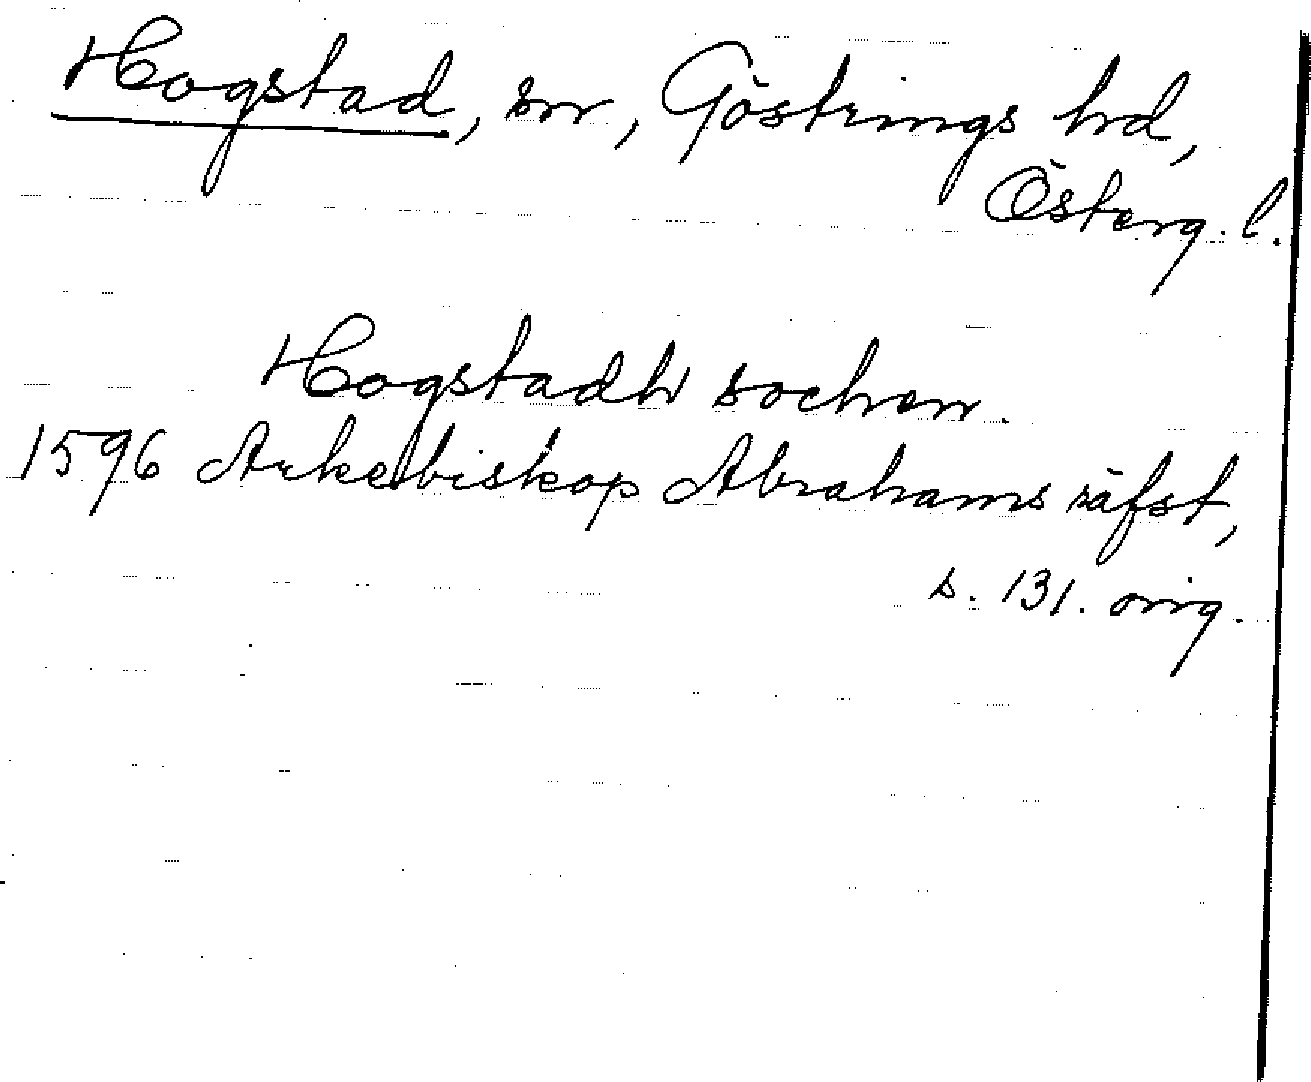 Hogstad, sn, Göstrings hd,
Österg. l.
Hogstadh sochen.
1596 Ärkebiskop Abrahams räfst,
s. 131. orig.